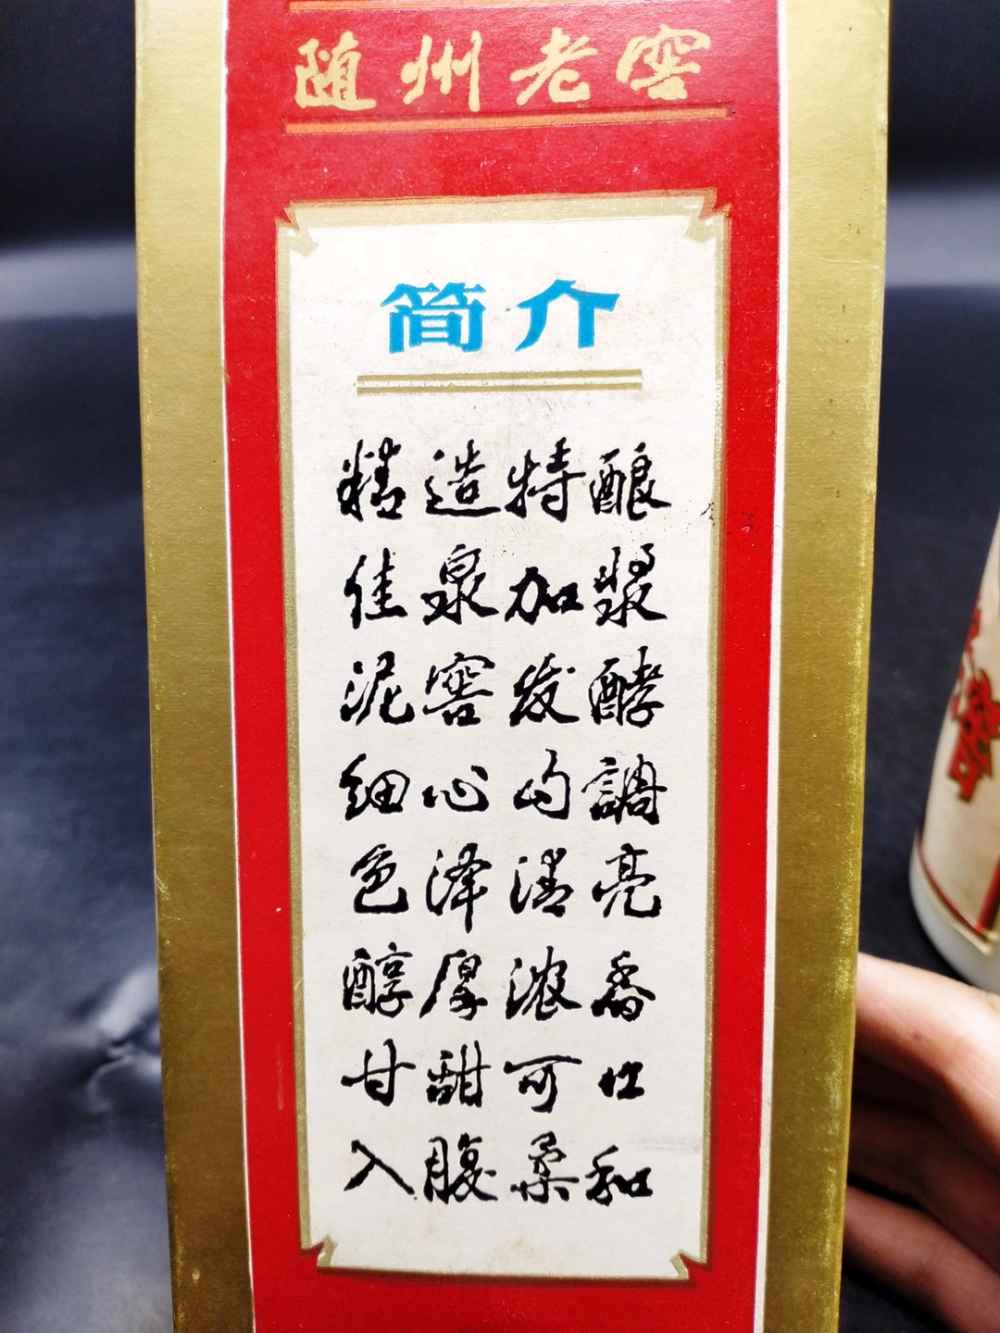 随州老窖
简介
精造特酿
佳泉加浆
泥窖发酵
细心勾調
色泽清亮
醇厚浓香
甘甜可口
入腹柔和